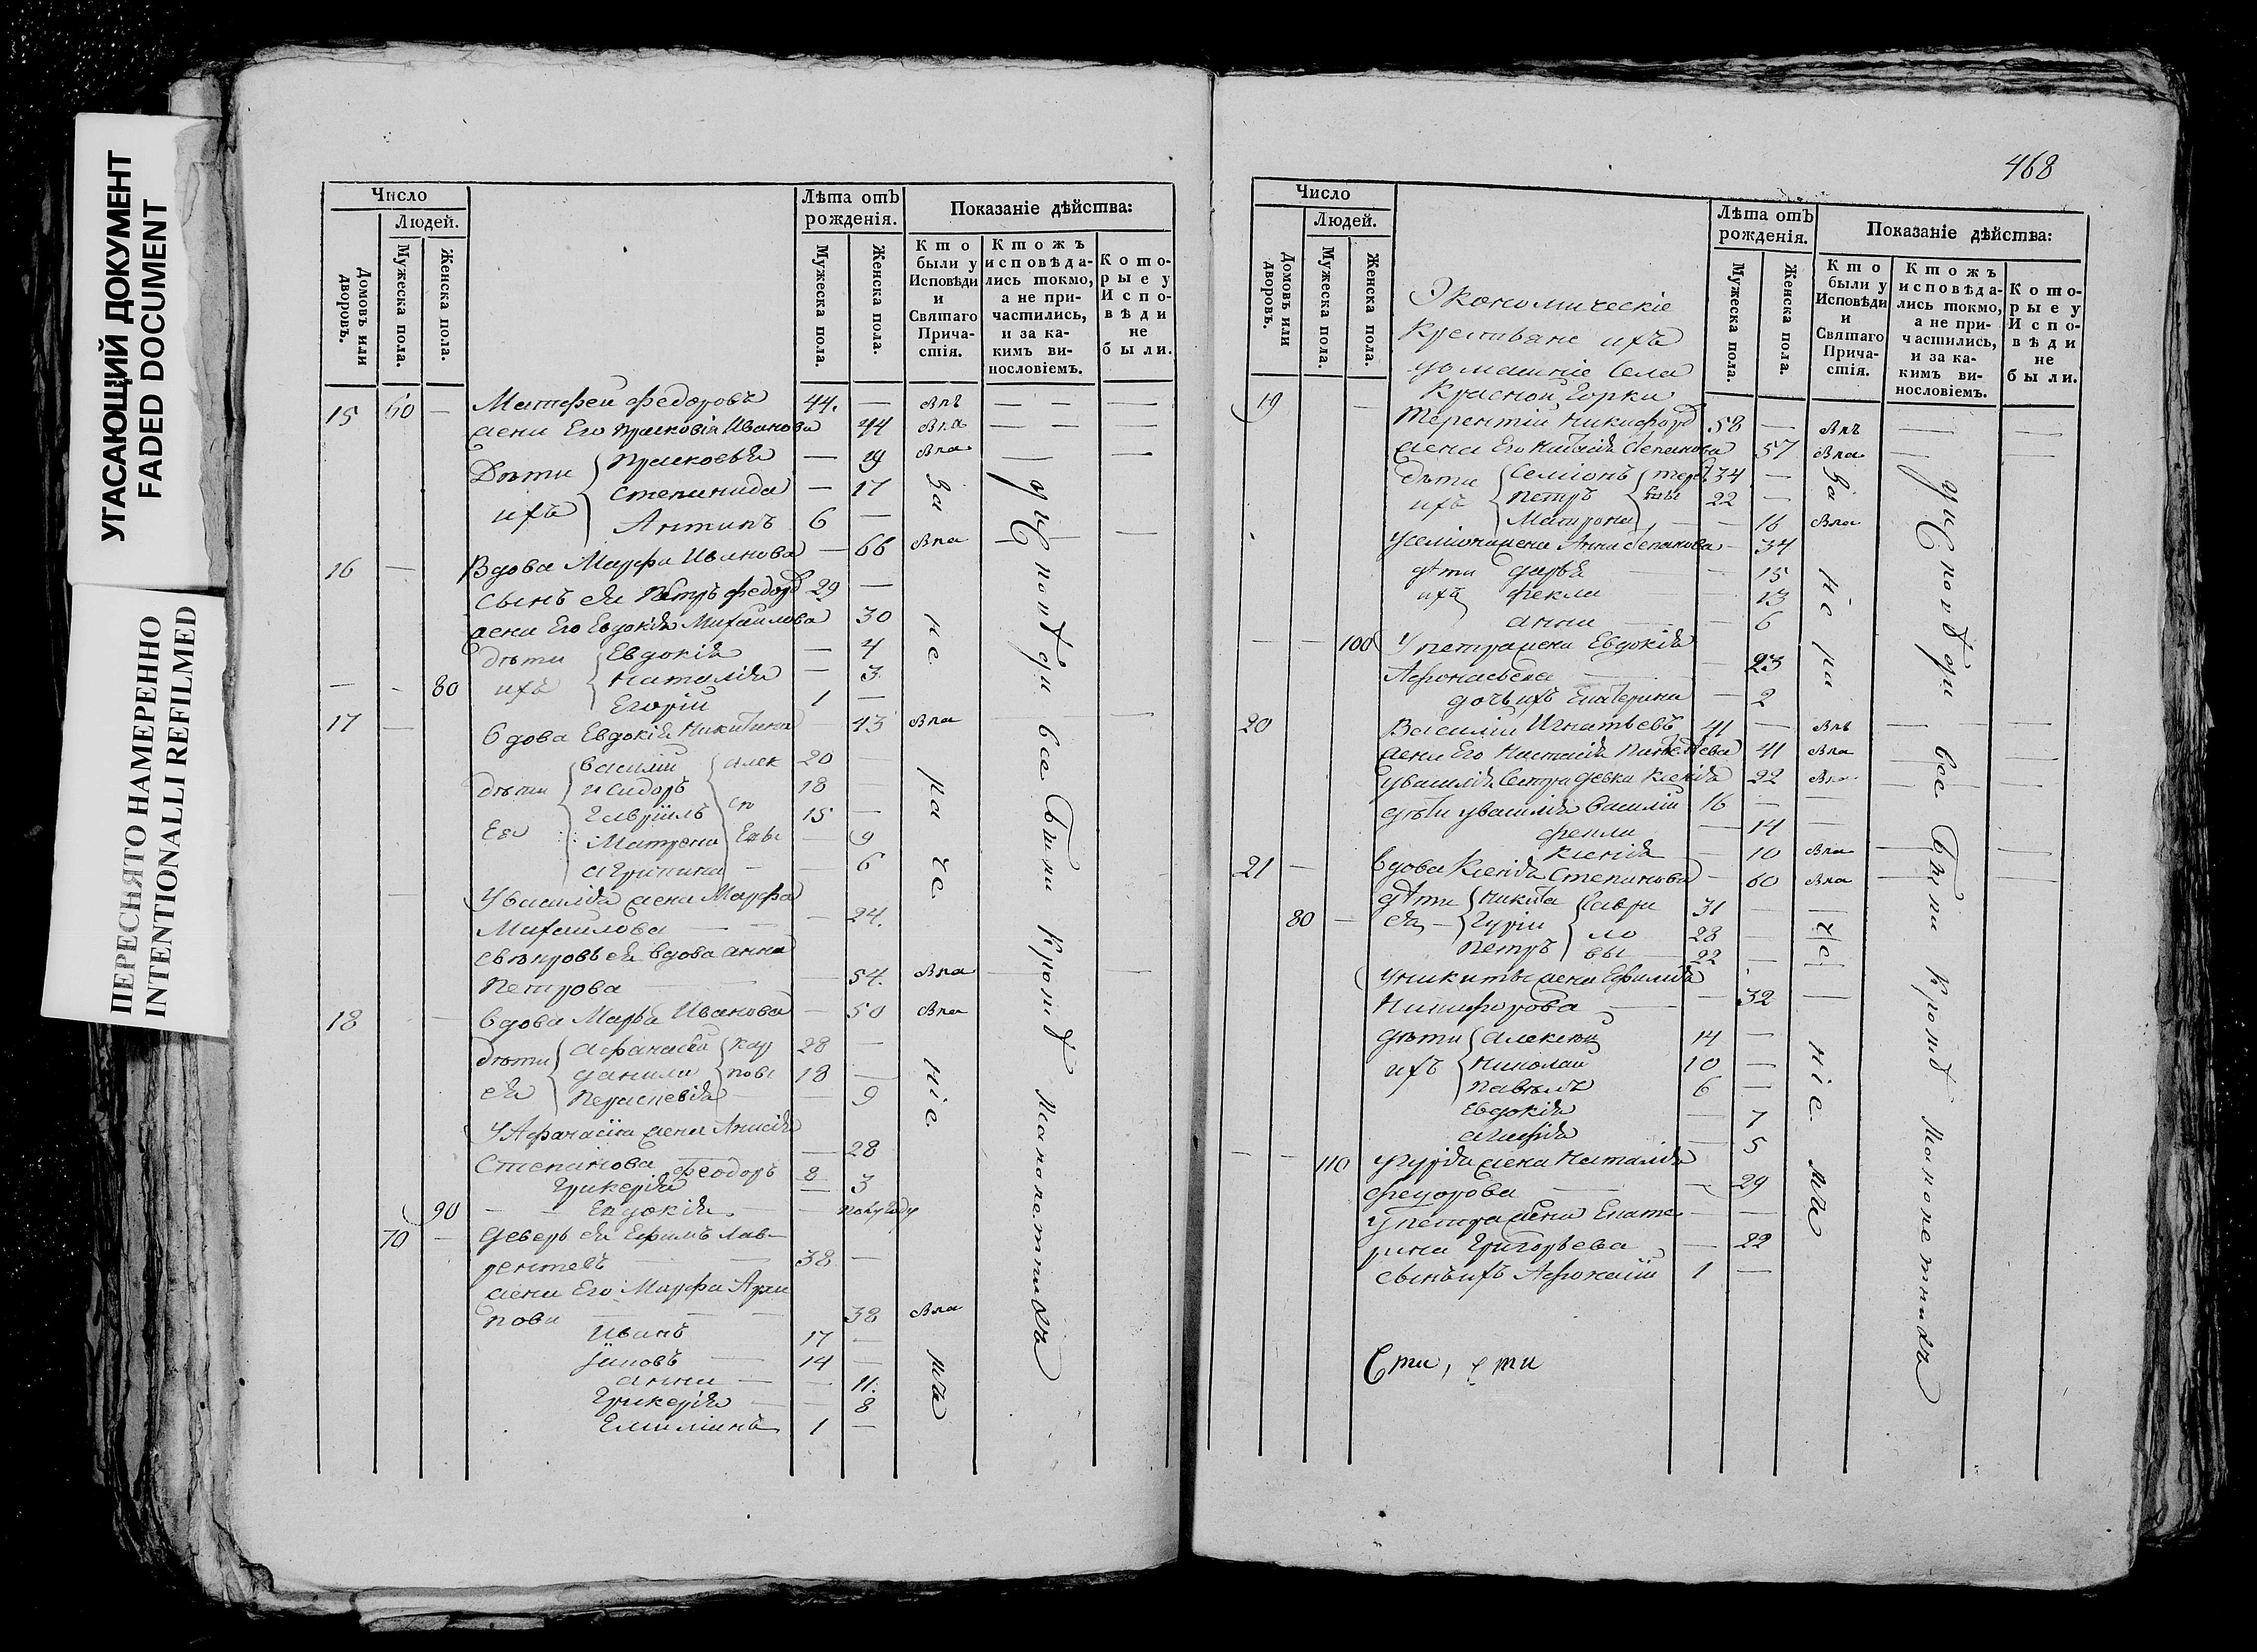 УГАСАЮЩИЙ ДОКУМЕНТ
FADED DOCUMENT
ПЕРЕСНЯТО НАМЕРЕННО
INTENTIONALLI REFILMED
Число
Людей.
Домовъ или дворовъ.
Мужеска пола.
Женска пола.
Лѣта отъ рожденія.
Мужеска пола.
Женска пола.
Показаніе дѣйства:
Кто были у Исповѣди и Святаго Причастія.
Ктожъ исповѣдались токмо, а не причастились, и за какимъ винословіемъ.
Которые у Исповѣди не были.
15 60 — Матфеи Федоровъ 44. — Впъ — — —
жена Его прасковіа Иванова 44 Впа — — —
Дѣти Прасковья — 19 Впа — —
Степанида — 17
ихъ Антипъ 6 —
16 — Вдова Марфа Иванова — 66 Впа — —
Сынъ ея Петръ федор 29 —
жена Его Евдокія Михаилова 30
дѣти Евдокія — 4
— - 80 ихъ Наталія — 3
Егоріи 1 —
17 — вдова Евдокія Никитина — 43 Впа — —
василіи Алек 20 —
дѣти исидоръ 18 —
Гавріилъ 15 —
Ея Матрена — 9
агрипина — — 6
У василіа жена Марфа
Михаилова — 24.
свѣкровь ея вдова анна
Петрова — 54. Впа — —
18 — вдова Марѳа Иванова — 50 Впа
дѣти афанасіи кар 28 —
данила повы 18 —
ея Параскевія — — 9
У Афанасіа жена Анисія
Степанова — 28
Феодоръ 8
Гликерія — 3
90 — — Евдокія — — полугоду
70 — деверь ея Ефимъ Лав-
рентевъ — 38 —
жена Его Марфа Архи
пова — — 38 Впа
Иванъ 17 —
Іаковъ — 14 —
анна — — 11.
Гликерія — — 8
Емиліанъ 1 —
За не ма че ніе мъ
У Исповѣди все были кромѣ малолетнихъ
468
Число
Людей.
Домовъ или дворовъ.
Мужеска пола.
Женска пола.
Лѣта отъ рожденія.
Мужеска пола.
Женска пола.
Показаніе дѣйства:
Кто были у Исповѣди и Святаго Причастія.
Ктожъ исповѣдались токмо, а не причастились, и за какимъ винословіемъ.
Которые у Исповѣди не были.
Экономическіе
Крестьяне ихъ
домашніе Села
Красной Горки
19 — Терентіи Никифор 58 — Впъ — —
жена Его Настасія Степанова 57 Впа — —
дѣти Семіонъ терен 34 —
Петръ тьевы 22 —
ихъ Матрона — — 16 Впа
У семіона жена Анна Степанова — 34
дѣти дарья — — 15
ихъ фекла 13
анна — — 6
— — 100 У петра жена Евдокія
Афонасьева — — 23
дочь ихъ Екатерина — 2
20 Василіи Игнатьевъ 41 — Впъ — —
жена Его Настасія 41 Впа — —
у василія сестра девка ксенія 22 Впа — —
дѣти у василія василіи 16 — —
фекла — 14 —
ксенія — 10 Впа — —
21 — вдова Ксенія Степанова — 60 Впа — —
дѣти Никита Гаври 31 —
80 — ея Гуріи ло 28 —
Петръ вы 22 —
У никиты жена Ефимія
Никифорова — — 32 —
дѣти алексѣи 14 —
ихъ Николаи 10 —
Павелъ 6 —
Евдокія — 7
агафія — 5
- - 110 У гурія жена Наталія
федорова — — 29
У петра жена Екате — —
рина Григорьева — 22
сынъ ихъ Афонасіи 1 —
За не ма че ніе мъ
У Исповѣди все были кромѣ малолетнихъ